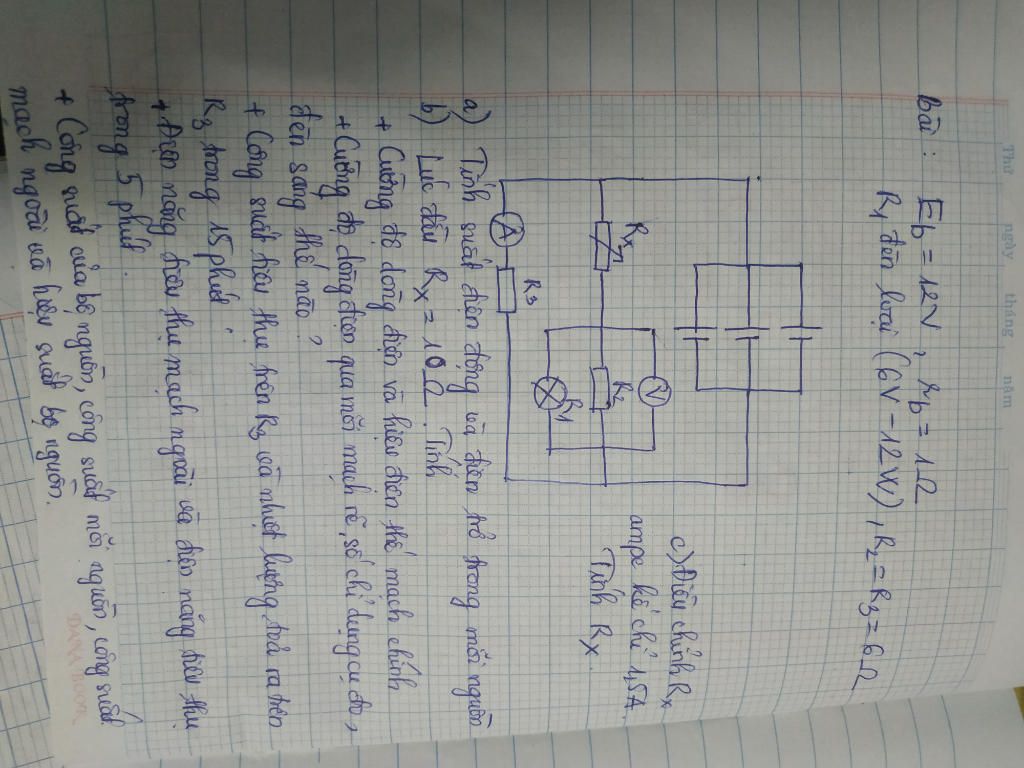 Thứ ngày tháng năm
Bài : Eb = 12V , rb = 1Ω
R1 đèn loại (6V - 12W) , R2 = R3 = 6Ω
Rx
V
R2
R1
A
R3
c) Điều chỉnh Rx
ampe kế chỉ 1,5A.
Tính Rx.
a) Tính suất điện động và điện trở trong mỗi nguồn
b) Lúc đầu Rx = 10Ω. Tính
+ Cường độ dòng điện và hiệu điện thế mạch chính
+ Cường độ dòng điện qua mỗi mạch rẽ, số chỉ dụng cụ đo,
đèn sáng thế nào?
+ Công suất tiêu thụ trên R3 và nhiệt lượng toả ra trên
R3 trong 15 phút.
+ Điện năng tiêu thụ mạch ngoài và điện năng tiêu thụ
trong 5 phút.
+ Công suất của bộ nguồn, công suất mỗi nguồn, công suất
mạch ngoài và hiệu suất bộ nguồn.
DANA BOOK